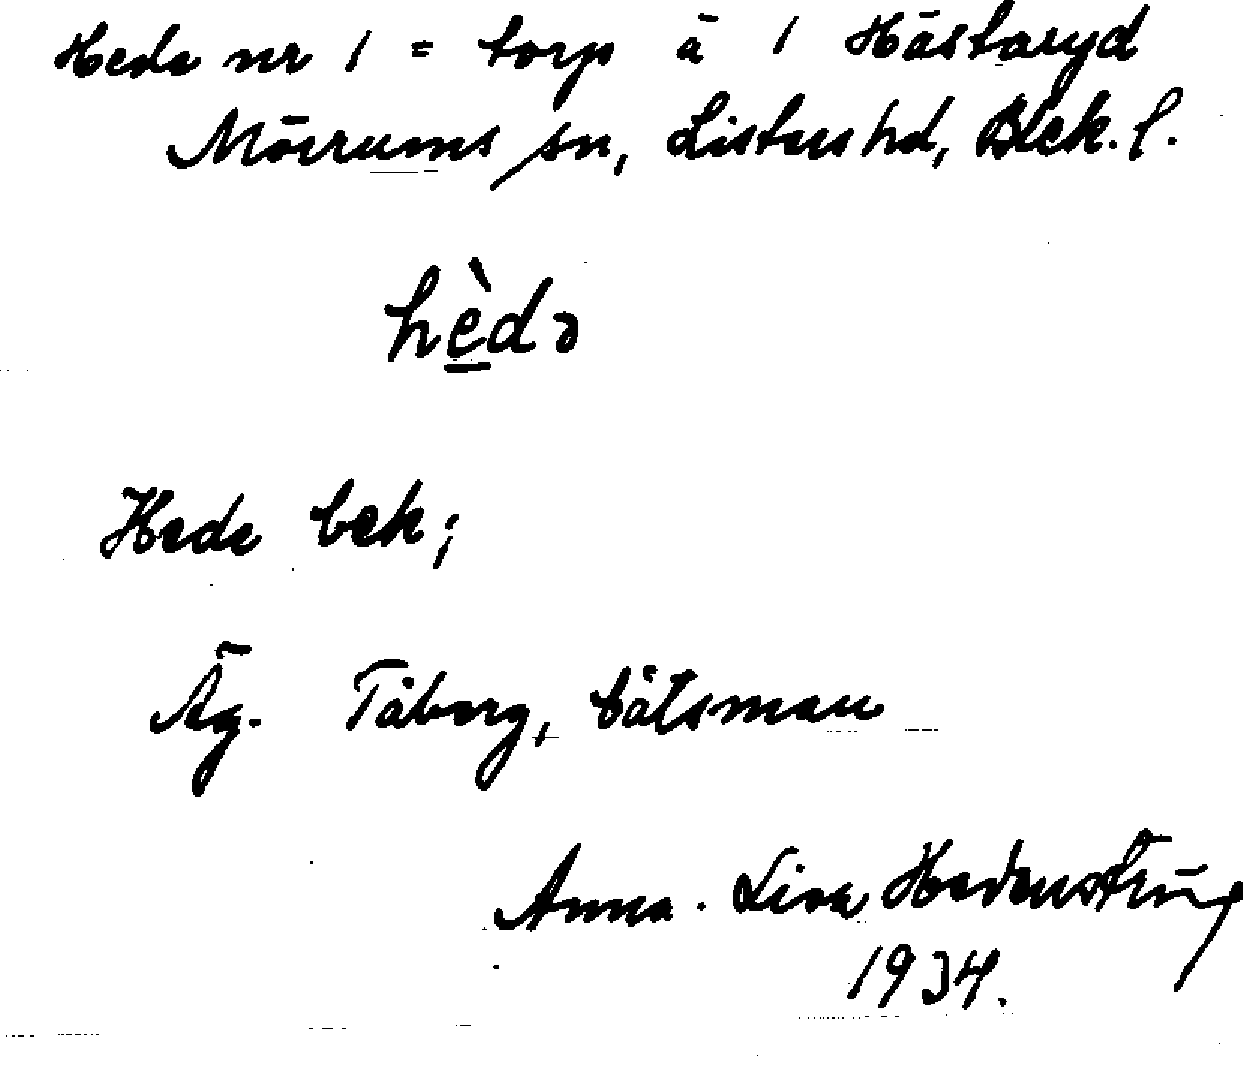 Hede nr 1 = torp å 1 Hästaryd
Mörrums sn, Listers hd, Blek. l.
hèdə
Hede bek;
Äg. Tåborg, båtsman
Anna-Lisa Hedenstrüp
1934.